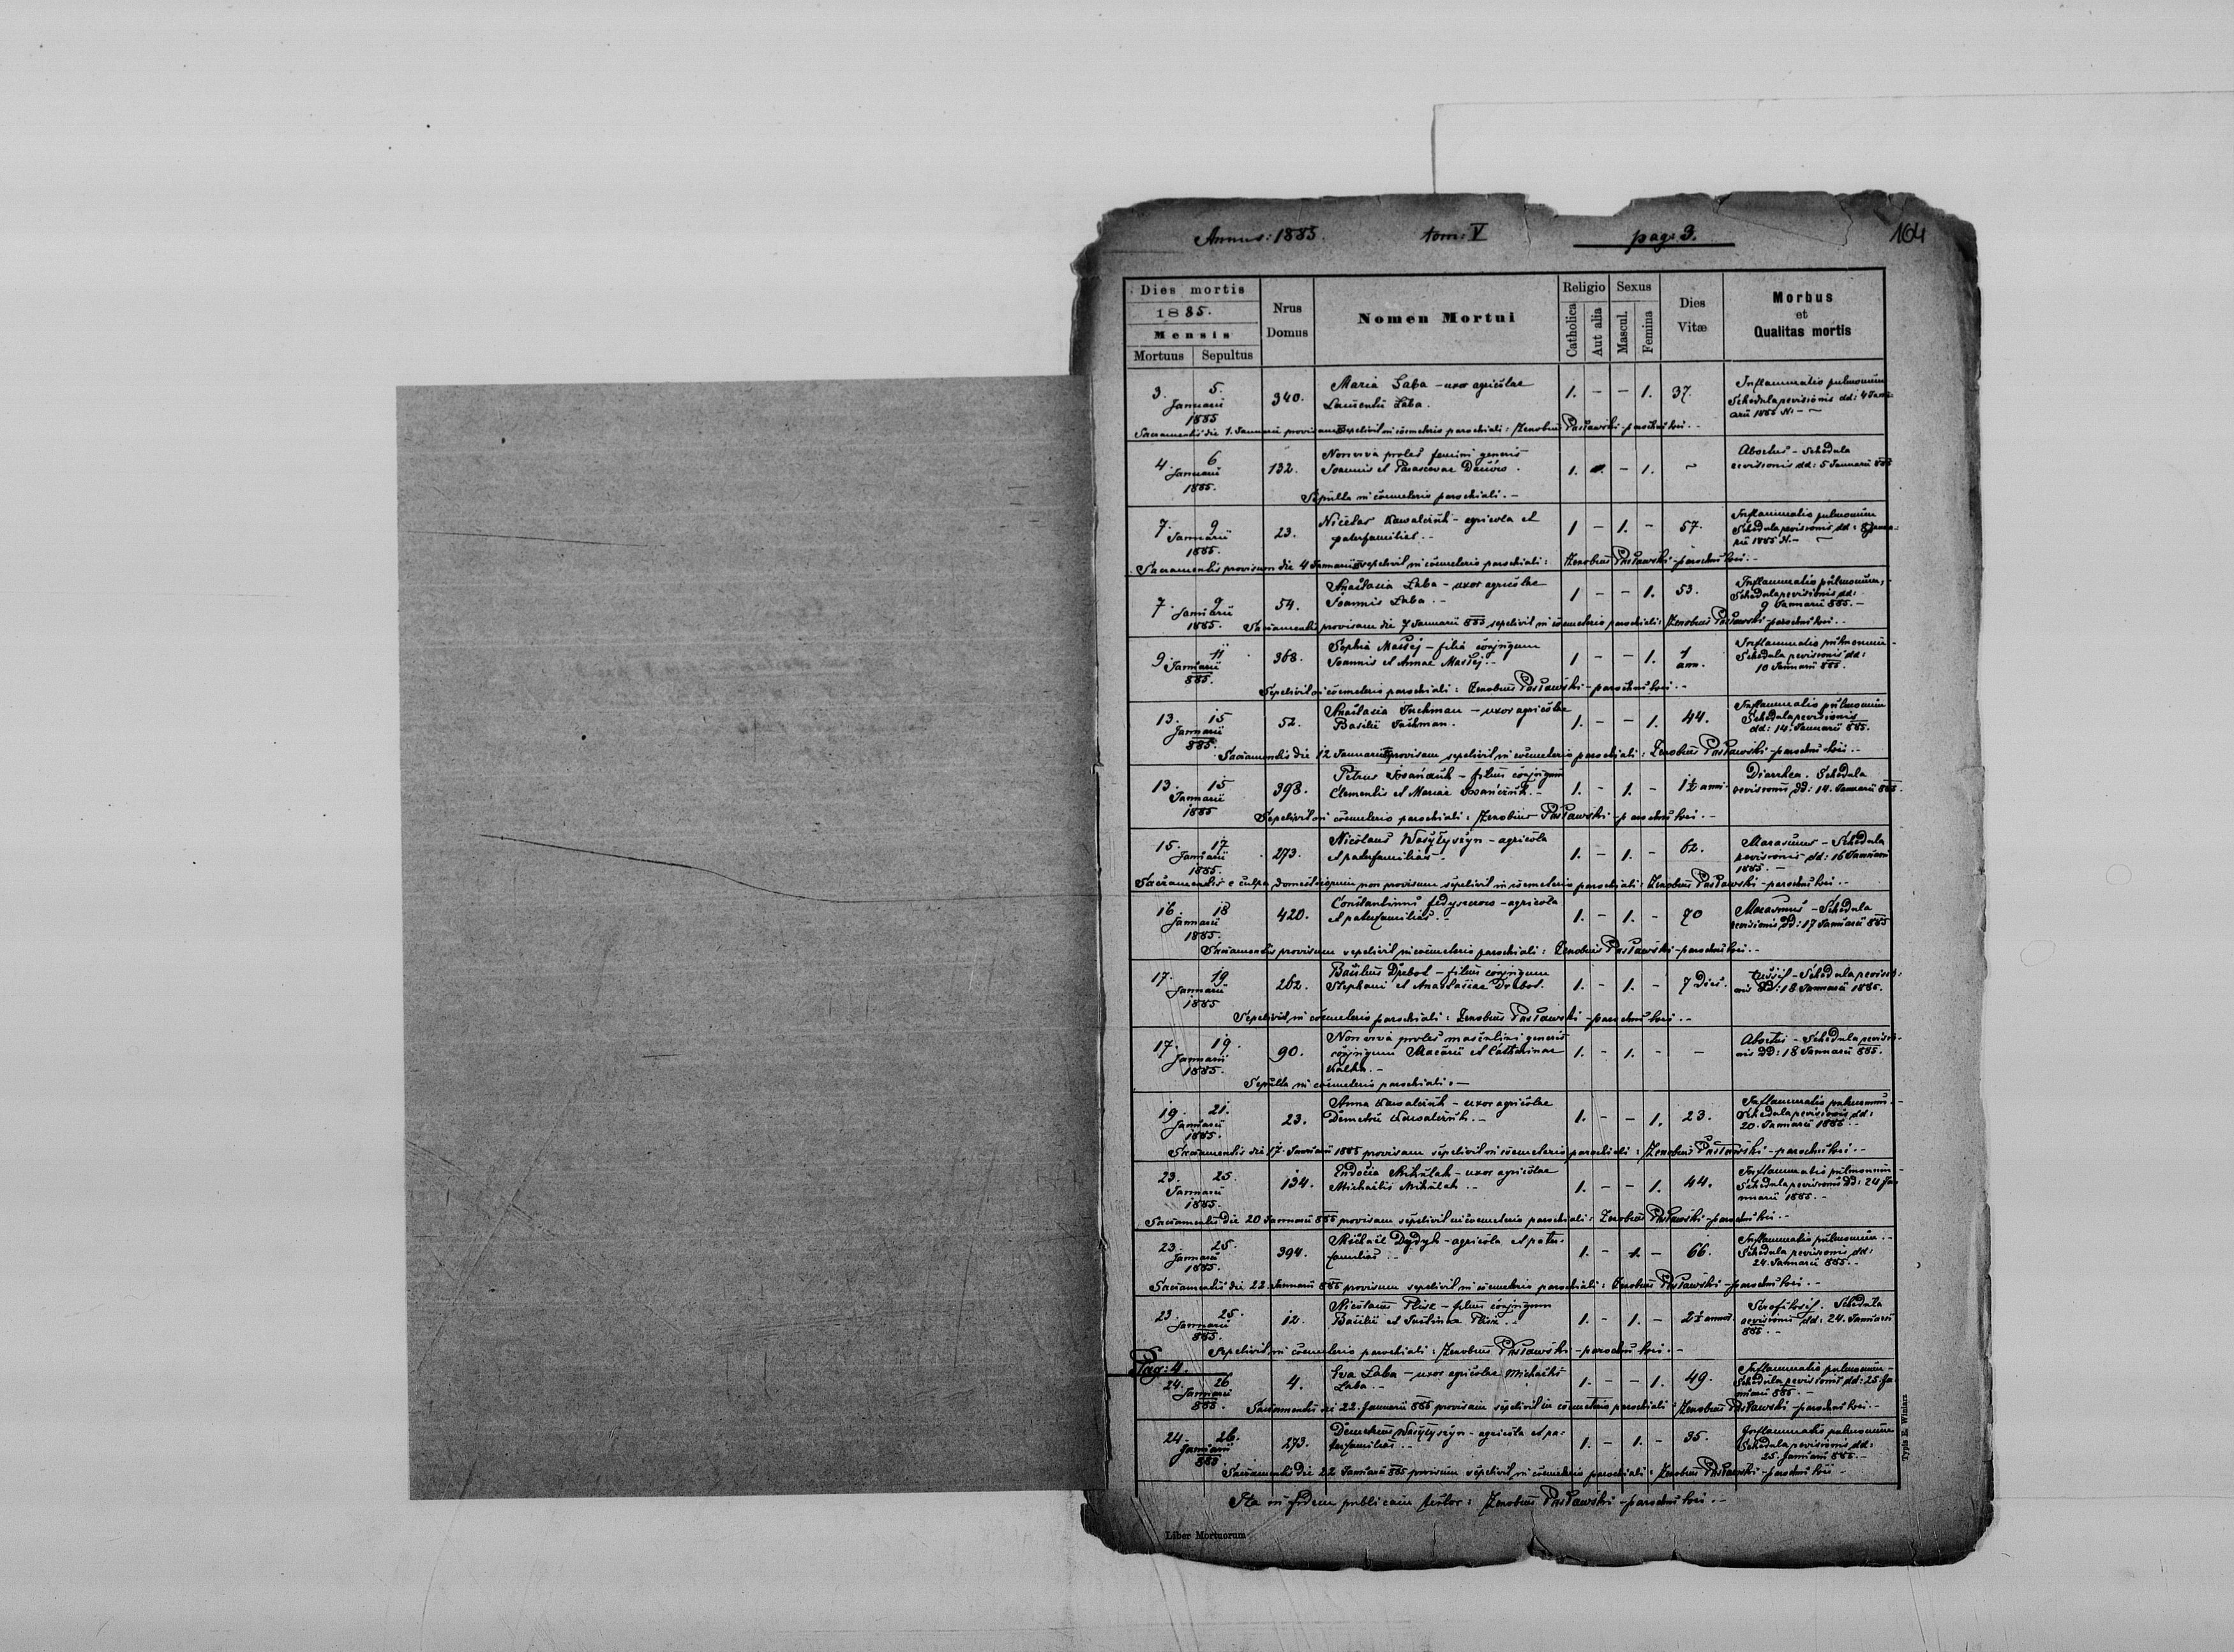 Annus: 1885. tom: V pag: 3. 164
Dies mortis
1885.
Mensis
Mortuus Sepultus
Nrus Domus
Nomen Mortui
Religio
Catholica
Aut alia
Sexus
Mascul.
Femina
Dies Vitæ
Morbus
et
Qualitas mortis
3. 5. Januarii 1885 340. Maria Łaba - uxor agricolae 1. - - 1. 37. Inflammatio pulmonum
Laurentii Łaba. Schedula revisionis dd: 4 Janu-
arii 1885 N: - ~
Sacramentis die 1. Januarii provisam sepelivit in coemeterio parochiali: Zenobius Pasławski - parochus loci. -
4. 6 Januarii 1885. 132. Non viva proles femini generis 1. - - 1. ~ Abortus - Schedula
Joannis et Parascevae revisionis dd: 5 Januarii 885
Sepulta in coemeterio parochiali. -
7. 9 Januarii 1885. 23. Nicetas Kowalczuk - agricola et 1 - 1. - 57. Inflammatio pulmonum
paterfamilias. - Schedula revisionis dd: 8 Janua-
rii 1885 N. - ~
Sacramentis provisum die 4 Januarii sepelivit in coemeterio parochiali: Zenobius Pasławski - parochus loci. -
7. 9 Januarii 1885. 54. Anastasia Łaba - uxor agricolae 1 - - 1. 53. Inflammatio pulmonum, -
Joannis Łaba. - Schedula revisionis dd:
9 Januarii 885. -
Sacramentis provisam die 7 Januarii 885 sepelivit in coemeterio parochiali: Zenobius Pasławski - parochus loci. -
9. 11 Januarii 885. 368. Sophia Maciej - filia conjugum 1 - - 1. 1 ann. Inflammatio pulmonum -
Joannis et Annae Maciej. - Schedula revisionis dd:
10 Januarii 885.
Sepelivit in coemeterio parochiali: Zenobius Pasławski - parochus loci. -
13. 15 Januarii 885. 52. Anastasia Tuchman - uxor agricolae 1. - - 1. 44. Inflammatio pulmonum
Basilii Tuchman. Schedula revisionis
dd: 14. Januarii 885.
Sacramentis die 12 Januarii provisam sepelivit in coemeterio parochiali: Zenobius Pasławski - parochus loci. -
13. 15 Januarii 1885 398. Petrus - filius conjugum 1. - 1. - 1½ anni. Diarrhea. Schedula
Clementis et Mariae revisionis dd: 14. Januarii 885.
Sepelivit in coemeterio parochiali: Zenobius Pasławski - parochus loci. -
15. 17 Januarii 1885. 273. Nicolaus Wasyłyszyn - agricola 1. - 1. - 62. Marasmus - Schedula
et paterfamilias. revisionis dd: 16 Januarii
1885. -
Sacramentis e culpa domesticorum non provisum sepelivit in coemeterio parochiali: Zenobius Pasławski - parochus loci. -
16. 18 Januarii 1885. 420. Constantinus Fedyszczow - agricola 1. - 1. - 70 Marasmus - Schedula
et paterfamilias. - revisionis dd: 17 Januarii 885
Sacramentis provisum sepelivit in coemeterio parochiali: Zenobius Pasławski - parochus loci. -
17. 19 Januarii 1885 262. Basilius Drebot - filius conjugum 1. - 1. - 7 Dies. tussis - Schedula revisio-
Stephani et Anastasiae Drebot. nis dd: 18 Januarii 1885.
Sepelivit in coemeterio parochiali: Zenobius Pasławski - parochus loci. -
17. 19. Januarii 1885. 90. Non viva proles masculini generis 1. - 1. - - Abortus - Schedula revisio-
conjugum Macarii et Catharinae nis dd: 18 Januarii 885.
Kałka. -
Sepulta in coemeterio parochiali. -
19. 21. Januarii 1885. 23. Anna Kowalczuk - uxor agricolae 1. - - 1. 23. Inflammatio pulmonum. -
Demetrii Kowalczuk. - Schedula revisionis dd:
20. Januarii 1885. -
Sacramentis die 17. Januarii 1885 provisam sepelivit in coemeterio parochiali: Zenobius Pasławski - parochus loci. -
23. 25. Januarii 1885. 134. Eudocia Mikulak - uxor agricolae 1. - - 1. 44. Inflammatio pulmonum -
Michaelis Mikulak. - Schedula revisionis dd: 24 Ja-
nuarii 1885. -
Sacramentis die 20 Januarii 885 provisam sepelivit in coemeterio parochiali: Zenobius Pasławski - parochus loci. -
23. 25. Januarii 1885. 394. Michaël Dydyk - agricola et pater- 1. - 1. - 66. Inflammatio pulmonum. -
familias. - Schedula revisionis dd:
24. Januarii 885. -
Sacramentis die 22 Januarii 885 provisum sepelivit in coemeterio parochiali: Zenobius Pasławski - parochus loci. -
23. 25. Januarii 885. 12. Nicolaus Plisz - filius conjugum 1. - 1. - 2½ annos. Schedula
Basilii et Justinae Plisz. - revisionis dd: 24. Januarii
885. -
Sepelivit in coemeterio parochiali: Zenobius Pasławski - parochus loci. -
Pag: 4.
24. 26 Januarii 885. 4. Eva Łaba - uxor agricolae Michaelis 1. - - 1. 49. Inflammatio pulmonum -
Łaba. - Schedula revisionis dd: 25. Ja-
nuarii 885. -
Sacramentis die 22. Januarii 885 provisam sepelivit in coemeterio parochiali: Zenobius Pasławski - parochus loci. -
24. 26. Januarii 885 273. Demetrius Wasyłyszyn - agricola et pa- 1. - 1. - 35. Inflammatio pulmonum
terfamilias. - Schedula revisionis dd:
25. Januarii 885. -
Sacramentis die 22 Januarii 885 provisum sepelivit in coemeterio parochiali: Zenobius Pasławski - parochus loci -
Ita in fidem publicam testor: Zenobius Pasławski - parochus loci. -
Liber Mortuorum
Typis E. Winiarz